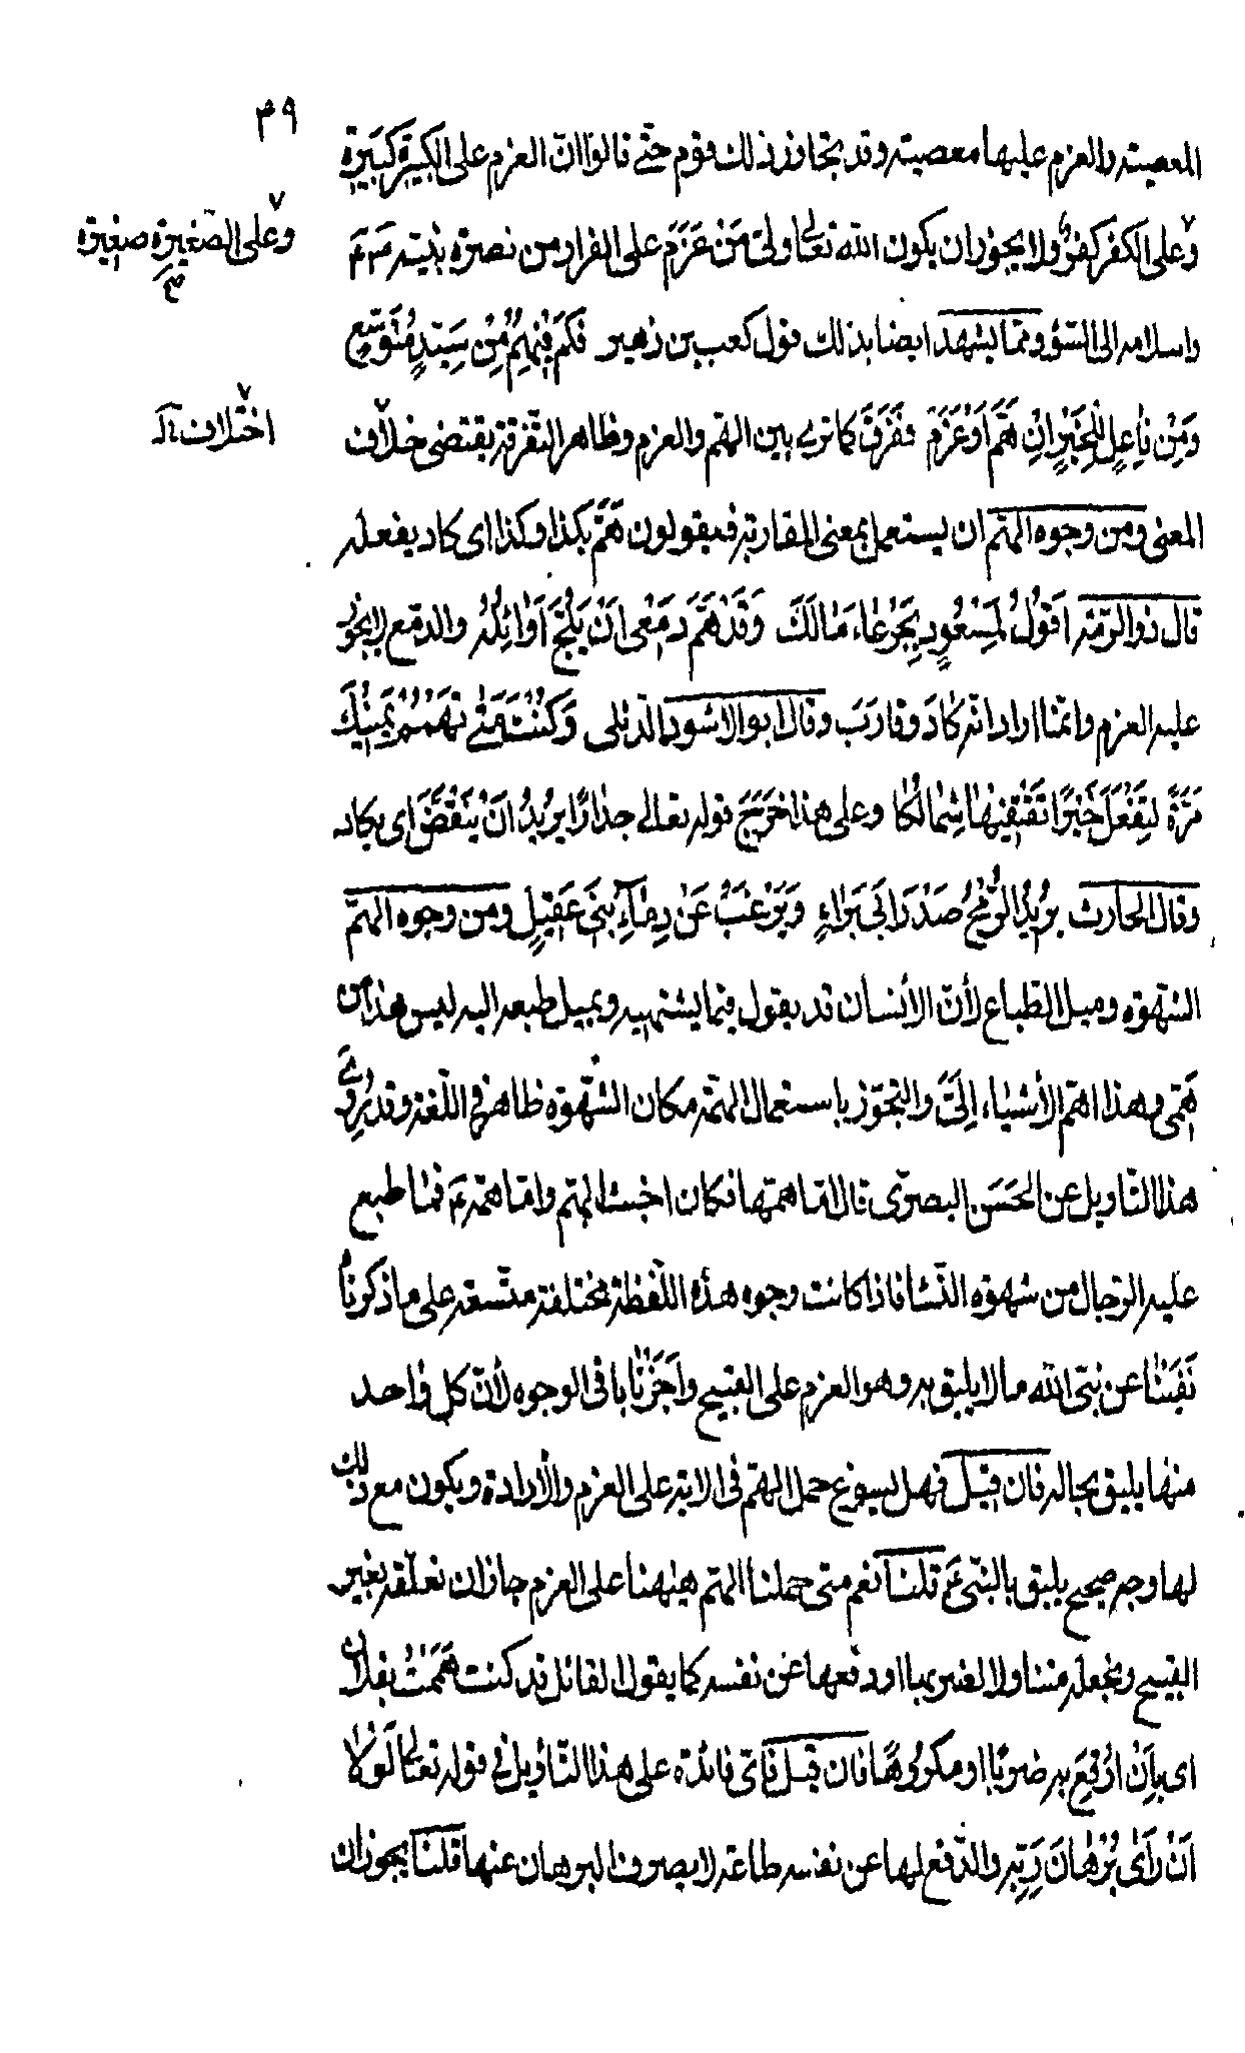 ٣٩
المعصية والعزم عليها معصية وقد تجاوز ذلك قوم حتّى قالوا انّ العزم على الكبيرة كَبيَرة
وعلى الصّغيرة صغيرة
صح
وعلى الكفر كفرٌ ولا يجوز ان يكون الله تعالى ولىّ مَنْ عَزَمَ على الفرار من نصرة نبيّه ٤م
واسلامه الى السّوُ وممّا يشهد ايضا بذلك قول كعب بن زهير فَكَم فِيْهِمُ مِنْ سَيّدٍ مُتَوَسّعٍ
اختلاف
وَمِنْ فاعِلٍ لِلخَيْرِ اِنْ هَمَّ اَوْعَزَمَ ففَرَقَ كما ترى بين الهمّ والعزم وظاهر التفرقة يقتضى خلاف
المعنى ومن وجوه الهمّ ان يستعمل بمعنى المقاربة فيقولون هَمَّ بكذا وكذا اى كاد يفعله
قال ذوالرّمّة اَقُولُ لِمَسْعُودٍ بِجَرْعاءِ مَالِكٍ وَقَدْ هَمَّ دَمْعى اَنْ يَلُجَّ اَوَائِلُهُ والدمع لا يجوز
عليه العزم وانّما اراد انّه كادَ وقارَبَ وقال ابوالاسود الدّئلى وَكُنْتَ مَتٰى تَهْمُمْ يَمِيْنُكَ
مَرّةً لِتَفْعَلَ خَيْرًا تَقْتَفِيْهَا شِمَالُكَا وعلى هذا خَرَجَ قوله تعالى جدارًا يريدُ اَنْ يَنْقَضَّ اى يكاد
وقال الحارث يُرِيْدُ الرُّمْحُ صَدْرَ اَبى بَرَاءٍ وَيَرْغَبُ عَنْ دِمَآءِ بَنِى عَقيْلٍ ومن وجوه الهمّ
الشّهوة وميل الطّباع لأنّ الأنسان قد يقول فيما يشتهيه ويميل طبعه اليه ليس هذا من
هَمّى وهذا اهمّ الأشياء اِلَىَّ والتجوّز باستعمال الهمّة مكان الشّهوة ظاهر فى اللّغة وقد رُوِىَ
هذا التّاويل عن الحَسَن البصرىّ قال امّا همّها فكان اخبث الهمّ وامّا همّه ٤م فما طبع
عليه الرّجال من شهوة النّسا فاذا كانت وجوه هذه اللّفظة مختلفة متّسعة على ما ذكرناه
نَفَيْنا عن نبىّ الله ما لا يليق به وهو العزم على القبيح واَجَزْنا باقى الوجوه لأنّ كل واحد
منها يليق بحاله فان قيل فهل يسوغ حمل الهمّ فى الاية على العزم والأرادة ويكون مع ذلك
لها وجه صحيح يليق بالنبّى ٤م قلنا نعم متى حملنا الهمّ هيهنا على العزم جاز ان نعلّقه بغير
القبيح ونجعله متناولا لضربها او دفعها عن نفسه كما يقول القائل قد كنت هَمَمْتُ بفلان
اى باَِنْ اُوْقِعَ به ضربًا او مكروهًا فان قيل فاىّ فائدة على هذا التّأويل فى قوله تعالى لَوْلا
اَنْ رَآى بُرْهَانَ رَبّه والدّفع لها عن نفسه طاعة لا يصرف البرهان عنها قلنا يجوز ان